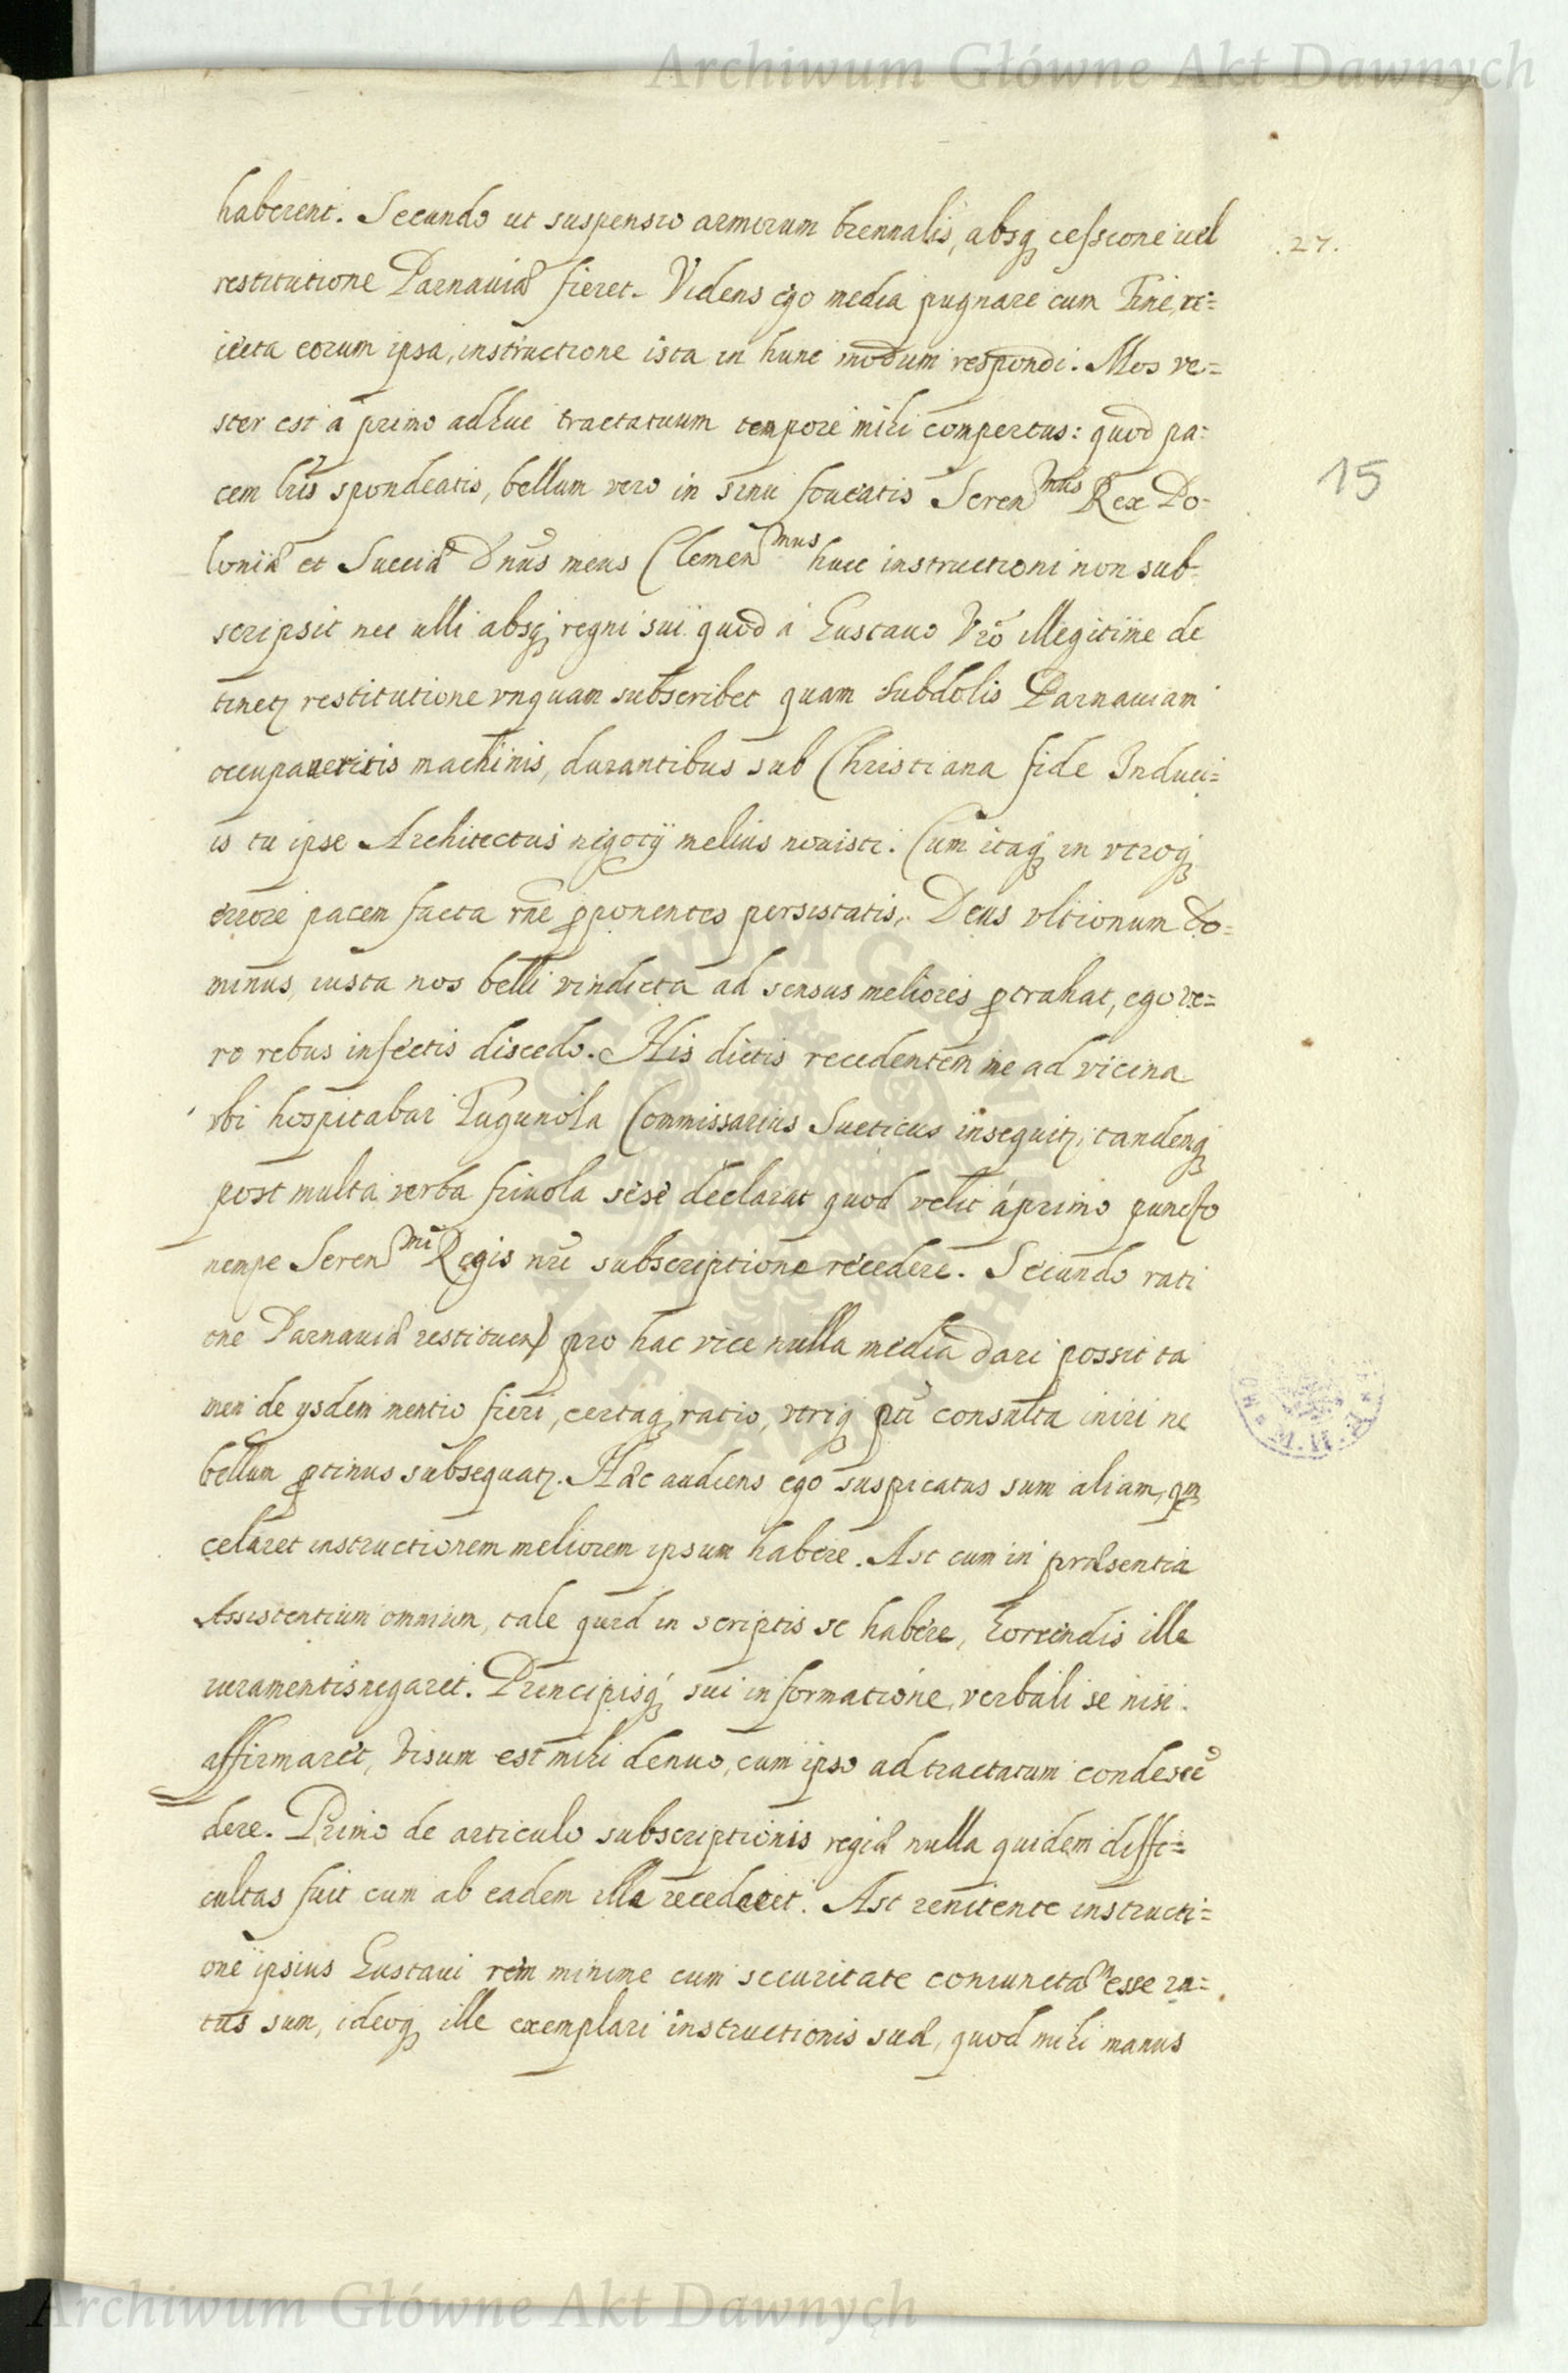 Archiwum Główne Akt Dawnych
haberent. Secundo ut suspensio armorum triennalis, absq cessione uel
.27.
restitutione Parnauiæ fieret. Videns ego media pugnare cum Fine, re=
iecta eorum ipsa, instructione ista in hunc modum respondi. Mos ve=
ster est à primo adhuc tractatuum tempore mihi compertus: quod pa=
15
cem lris spondeatis, bellum vero in sinu foueatis Seren mus Rex Po-
loniæ et Sueciæ Dnus meus Clemen mus huic instructioni non sub-
scripsit nec ulli absq regni sui quod á Gustauo Vro illegitime de
tinetz restitutione vnquam subscribet quam subdolis Parnauiam
occupaueritis machinis, durantibus sub Christiana fide Induci=
is tu ipse Architectus negotÿ melius nouisti. Cum itaq in vtroq
errore pacem facta rne pponentes persistatis, Deus vltionum Do=
minus, iusta nos belli vindicta ad sensus meliores ptrahat, ego ve=
ro rebus infectis discedo. His dictis recedentem me ad vicina
vbi hospitabar Fugunola Commissarius Sueticus insequitz, tandemq
post multa verba friuola sese declarat quod velit á primo puncto
nempe Seren mi Regis nri subscriptione recedere. Secundo rati
one Parnauiæ restituen pro hac vice nulla media dari possit ta
men de ysdem mentio fieri, certaq ratio, vtriq pti consulta iniri ne
bellum ptinus subsequatz. Hæc audiens ego suspicatus sum aliam, qm
celaret instructionem meliorem ipsum habere. Ast cum in præsentia
Assistentium omnium, tale quid in scriptis se habere, horrendis ille
iuramentis negaret. Principisq sui informatione, verbali se nisi
affirmaret, visum est mihi denuo, cum ipso ad tractatum condesce
dere. Primo de articulo subscriptionis regiæ nulla quidem diffi=
cultas fuit cum ab eadem ille recederet. Ast renitente instructi=
one ipsius Gustaui rem minime cum securitate coniuncta m esse ra=
tus sum, ideoq ille exemplari instructionis suæ, quod mihi manus
Archiwum Główne Akt Dawnych